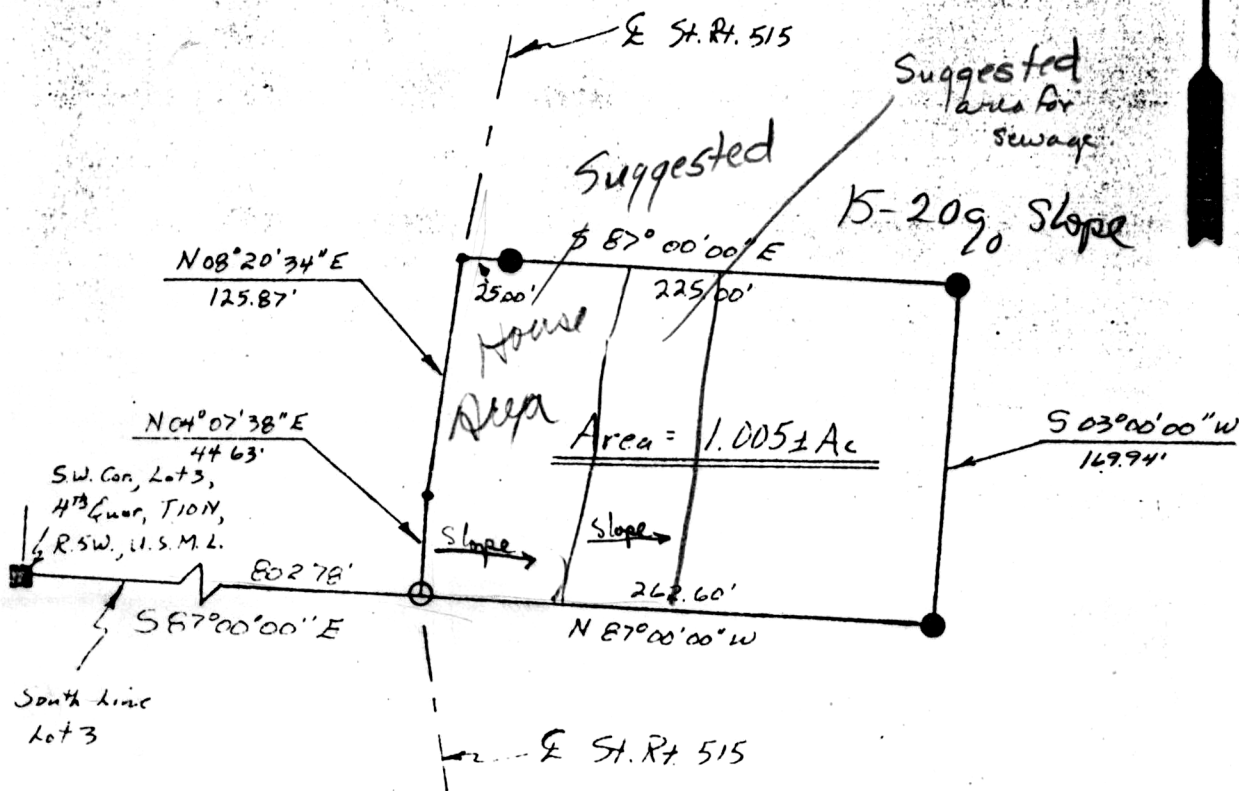 ℄ St. Rt. 515
Suggested
area for
sewage
Suggested
15-20% Slope
S 87°00'00" E
N 08°20'34" E
125.87'
25.00'
225.00'
House
Area
N 04°07'38" E
44.63'
Area = 1.005± Ac
S 03°00'00" W
169.94'
S.W. Cor., Lot 3,
4th Quar, T10N,
R.5W., U.S.M.L.
Slope
Slope
802.78'
262.60'
S 87°00'00" E
N 87°00'00" W
South Line
Lot 3
℄ St. Rt. 515